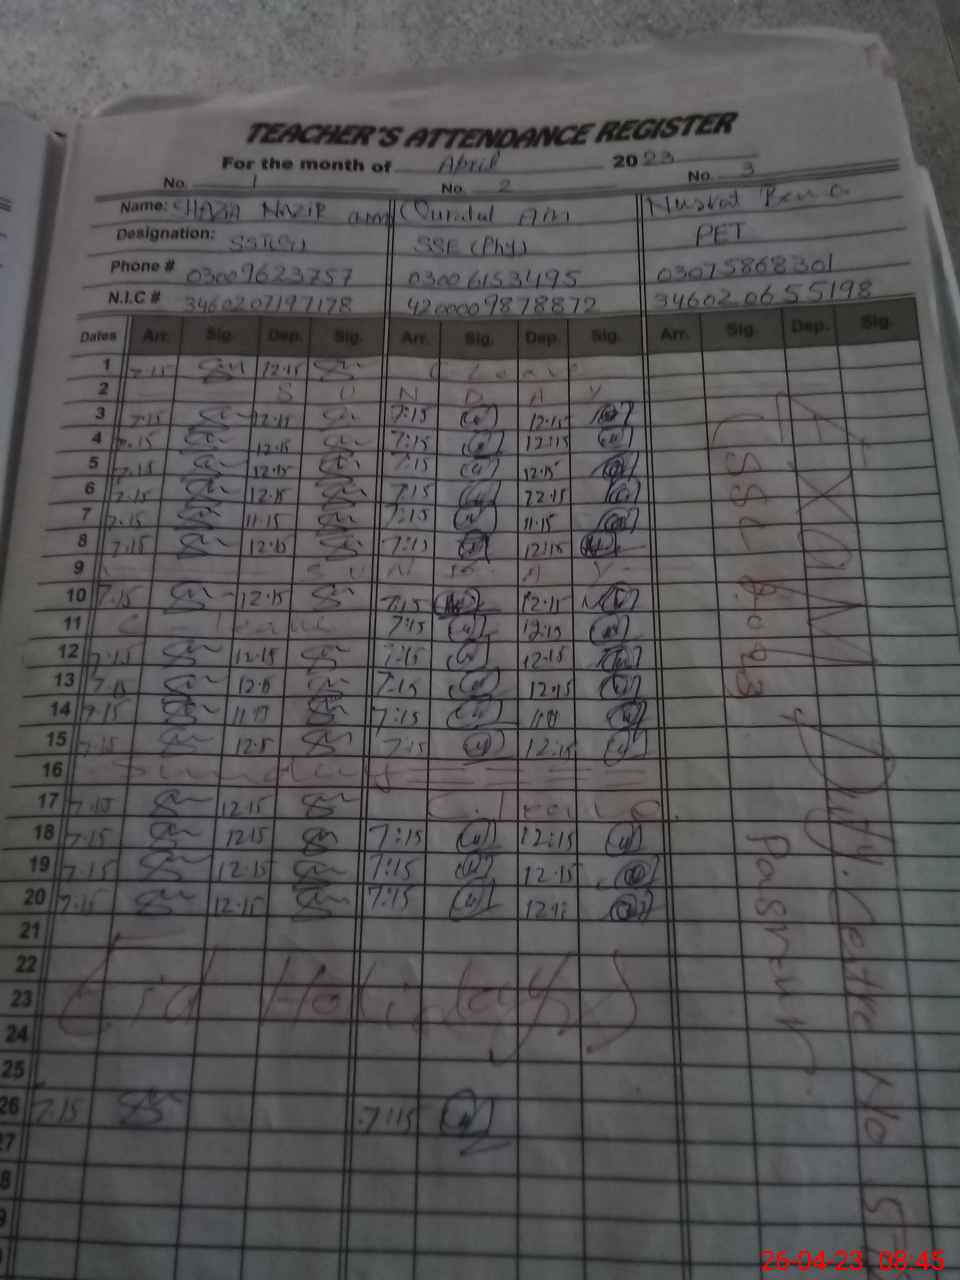 TEACHER'S ATTENDANCE REGISTER
For the month of April 2023
No. 1 No. 2 No. 3
Name: SHAZIA NAZIR Quratul Ain Nusrat
Designation: SST(G) SSE (Phy) PET
Phone # 03009623757 03006153495 03075868301
N.I.C # 3460207197178 4200009878872 3460206655198
Dates Arr. Sig. Dep. Sig. Arr. Sig. Dep. Sig. Arr. Sig. Dep. Sig.
1 7:15 12:15 C. Leave
2 S U N D A Y
3 7:15 12:15 7:15 12:15
4 7:15 12:15 7:15 12:15
5 7:15 12:15 7:15 12:15
6 7:15 12:15 7:15 12:15
7 7:15 11:15 7:15 11:15
8 7:15 12:15 7:15 12:15
9 S U N D A Y
10 7:15 12:15 7:15 12:15
11 C-leave 7:15 12:15
12 7:15 12:15 7:15 12:15
13 7:15 12:15 7:15 12:15
14 7:15 7:15
15 7:15 12:15 7:15 12:15
16 Sunday
17 7:15 12:15 C. Leave
18 7:15 12:15 7:15 12:15
19 7:15 12:15 7:15 12:15
20 7:15 12:15 7:15
21
22
23 Eid Holidays
24
25
26 7:15 7:15
27
8
9
EXAM Duty. Centre No 5
26-04-23 08:45